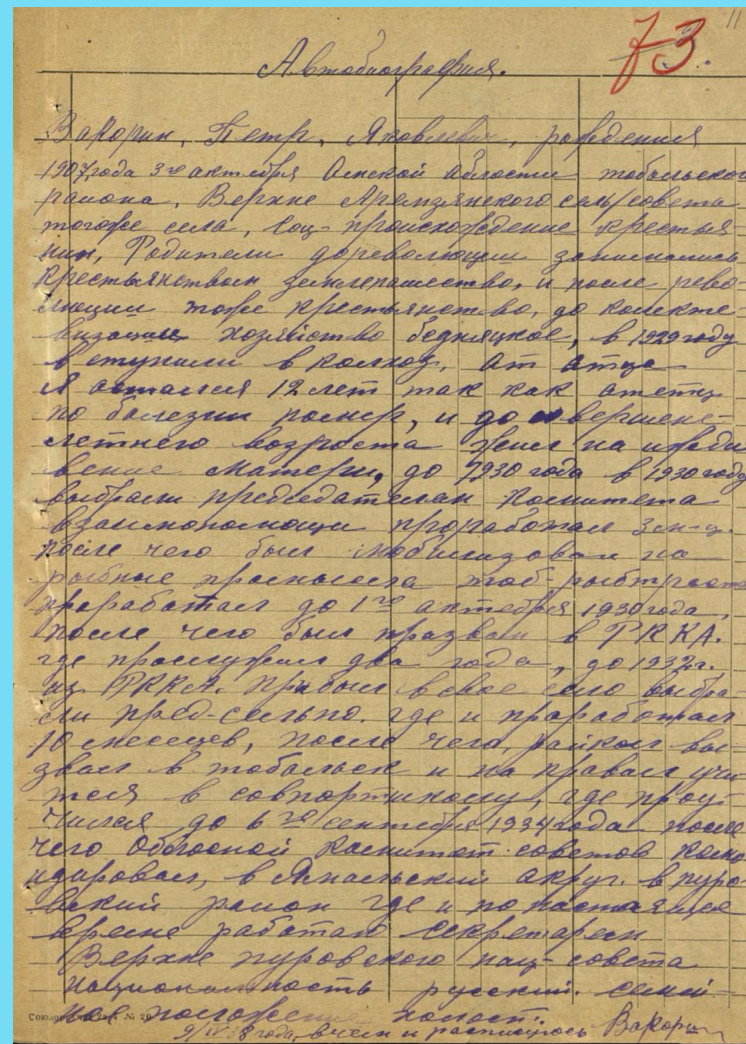 11
73.
Автобиография.
Вакорин, Петр, Яковлевич, рождения
1907 года 3го актября Омской области тобольского
района, Верхне Аремзянского сель/совета
тогоже села, соц-происхождение крестья
нин, Родители дореволюции занимались
крестьянством землепашество, и после рево
люции тоже крестьянство, до колекте-
визации хозяйство бедняцкое, в 1929 году
вступили в колхоз, от отца
я остался 12 лет так как отец
по болезни помер, и до вершене-
летнего возроста жил на иждив
вение матери, до 1930 года в 1930 году
выбрали председателем комитета
взаимопомощи проработал
после чего был мобилизован на
рыбные промысела тоб-рыбтреста
проработал до 1го актября 1930 года,
после чего был призван в РККА.
где прослужил два года, до 1932 г.
из РККА. прибыл в свое село выбра-
ли пред-сельпо. где и проработал
10 месецев, после чего, райком вы-
звал в тобольск и на правил учи
тся в совпортшколу, где проу-
чился до 6го сентября 1934 года после
чего Облосной комитет советов кома
ндировал, в Ямальский акруг. в пуро-
вский район где и по настоящее
время работаю секретарем
Верхне пуровского нац-совета
национальность русский. семей-
ное положение холост.
9/IV 38 года, в чем и расписуюсь Вакорин